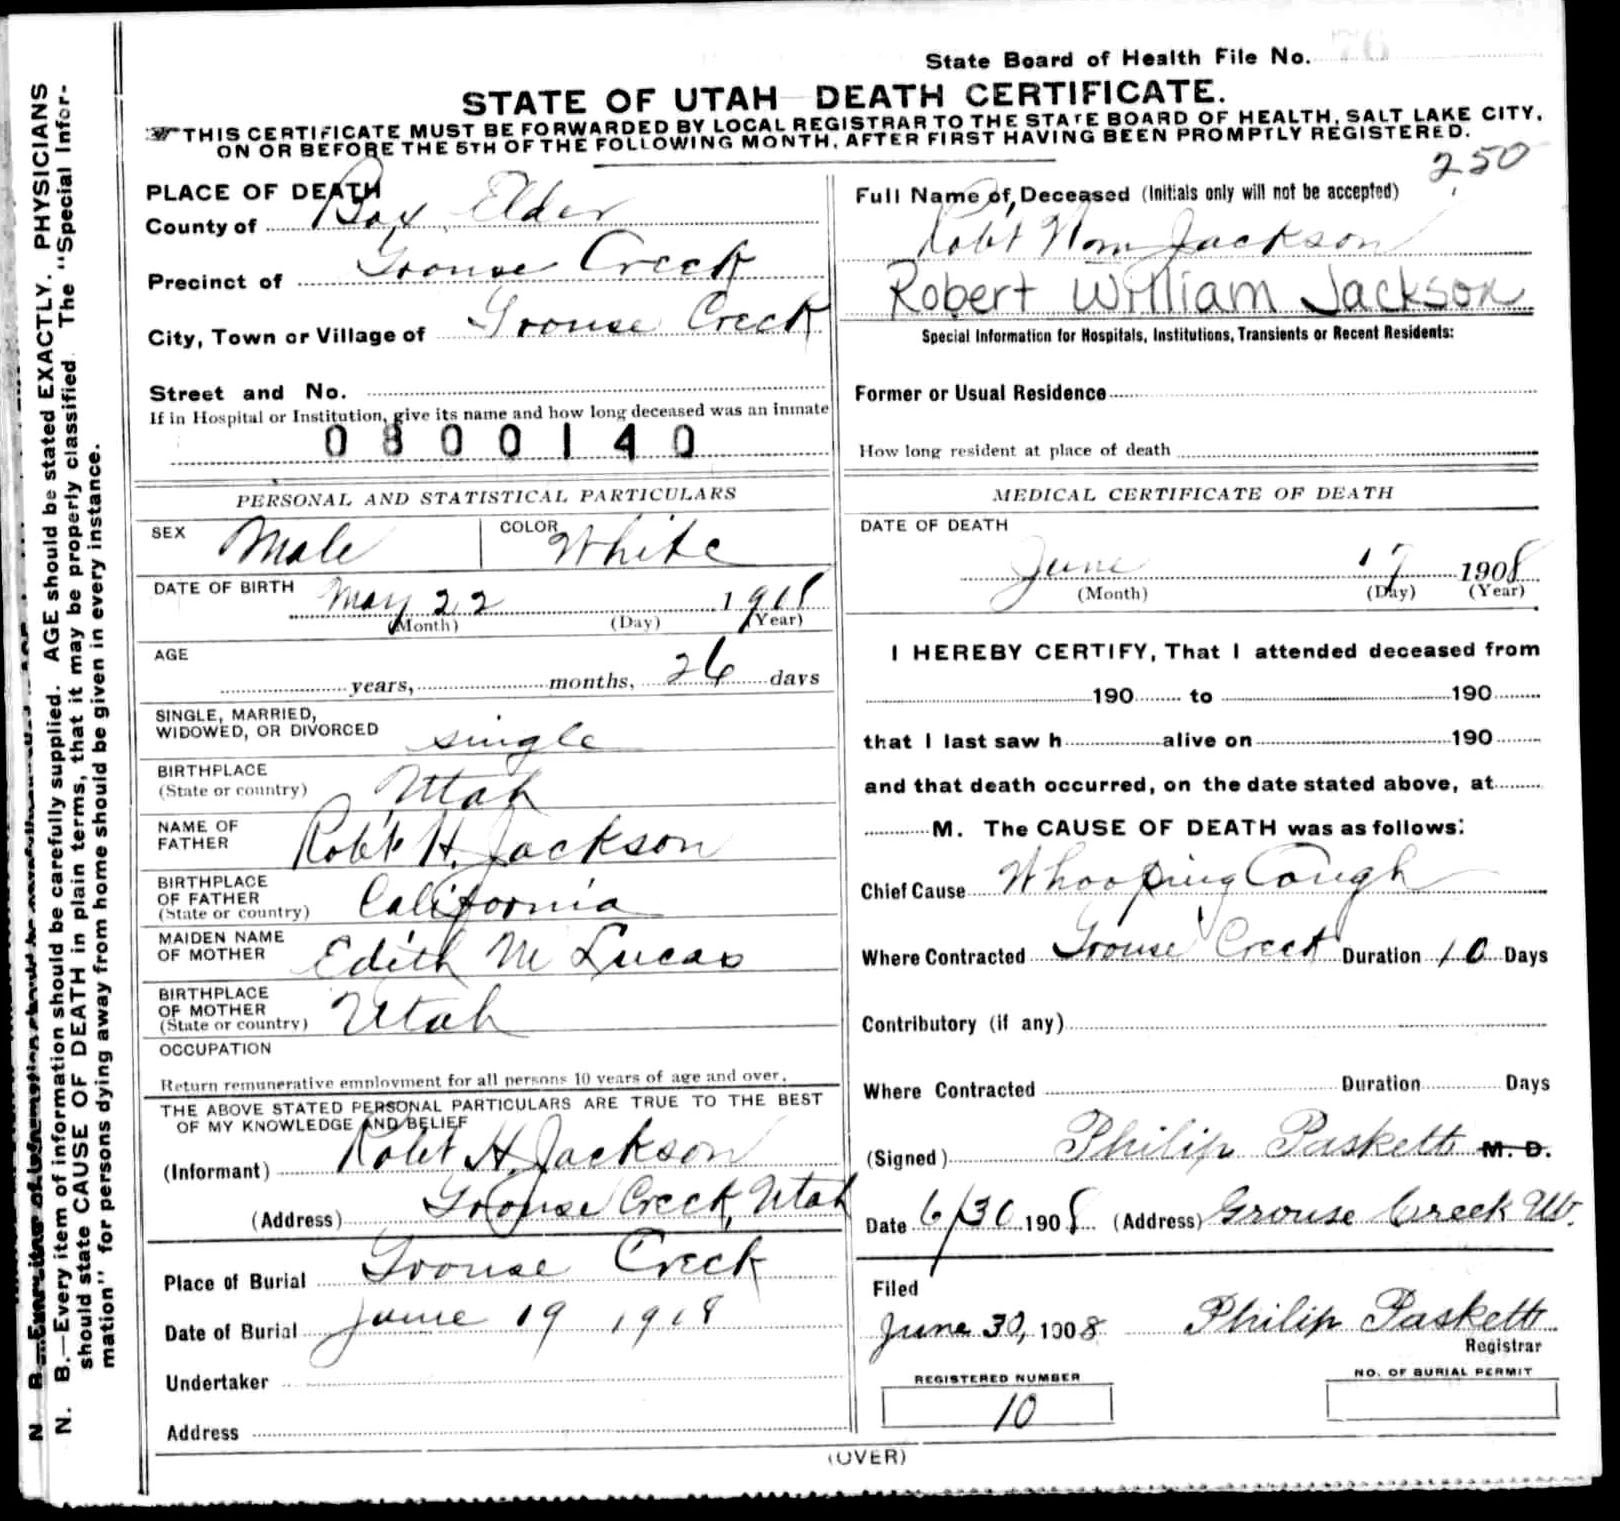 State Board of Health File No. 76
STATE OF UTAH DEATH CERTIFICATE.
THIS CERTIFICATE MUST BE FORWARDED BY LOCAL REGISTRAR TO THE STATE BOARD OF HEALTH, SALT LAKE CITY,
ON OR BEFORE THE 5TH OF THE FOLLOWING MONTH, AFTER FIRST HAVING BEEN PROMPTLY REGISTERED.
250
PLACE OF DEATH
County of Box Elder
Precinct of Grouse Creek
City, Town or Village of Grouse Creek
Street and No.
If in Hospital or Institution, give its name and how long deceased was an inmate
0800140
PERSONAL AND STATISTICAL PARTICULARS
SEX Male COLOR White
DATE OF BIRTH May 22 1908
(Month) (Day) (Year)
AGE
years, months, 26 days
SINGLE, MARRIED,
WIDOWED, OR DIVORCED single
BIRTHPLACE
(State or country) Utah
NAME OF
FATHER Robt H. Jackson
BIRTHPLACE
OF FATHER
(State or country) California
MAIDEN NAME
OF MOTHER Edith M Lucas
BIRTHPLACE
OF MOTHER
(State or country) Utah
OCCUPATION
Return remunerative employment for all persons 10 years of age and over.
THE ABOVE STATED PERSONAL PARTICULARS ARE TRUE TO THE BEST
OF MY KNOWLEDGE AND BELIEF
(Informant) Robt H. Jackson
(Address) Grouse Creek, Utah
Place of Burial Grouse Creek
Date of Burial June 19 1908
Undertaker
Address
Full Name of Deceased (Initials only will not be accepted)
Robt Wm Jackson
Robert William Jackson
Special Information for Hospitals, Institutions, Transients or Recent Residents:
Former or Usual Residence
How long resident at place of death
MEDICAL CERTIFICATE OF DEATH
DATE OF DEATH
June 17 1908
(Month) (Day) (Year)
I HEREBY CERTIFY, That I attended deceased from
190 to 190
that I last saw h alive on 190
and that death occurred, on the date stated above, at
M. The CAUSE OF DEATH was as follows:
Chief Cause Whooping Cough
Where Contracted Grouse Creek Duration 10 Days
Contributory (if any)
Where Contracted Duration Days
(Signed) Philip Paskett M. D.
Date 6/30 1908 (Address) Grouse Creek Ut.
Filed
June 30, 1908 Philip Paskett
Registrar
REGISTERED NUMBER
10
NO. OF BURIAL PERMIT
(OVER)
N. B.—Every item of information should be carefully supplied. AGE should be stated EXACTLY. PHYSICIANS
should state CAUSE OF DEATH in plain terms, that it may be properly classified. The "Special Infor-
mation" for persons dying away from home should be given in every instance.